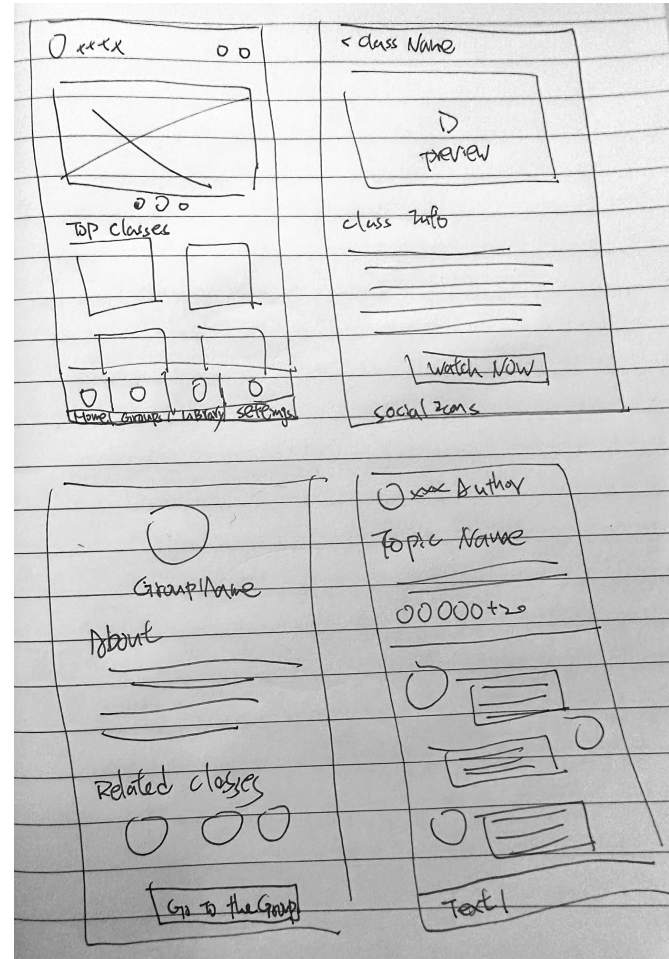 xxxx
Top Classes
Home Groups Library settings
< Class Name
preview
class Info
Watch NOW
social Icons
Group Name
About
Related classes
Go To the Group
xxx Author
Topic Name
+20
Text |